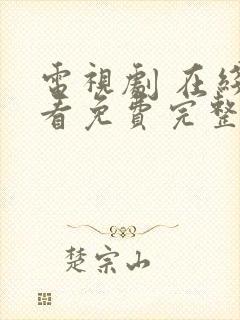 電視劇 在
看免費完整
楚宗山